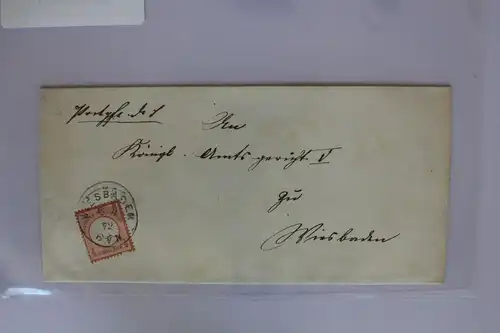 Portopfl. d. S.
An
Königl. Amtsgericht V
zu
Wiesbaden
WIESBADEN